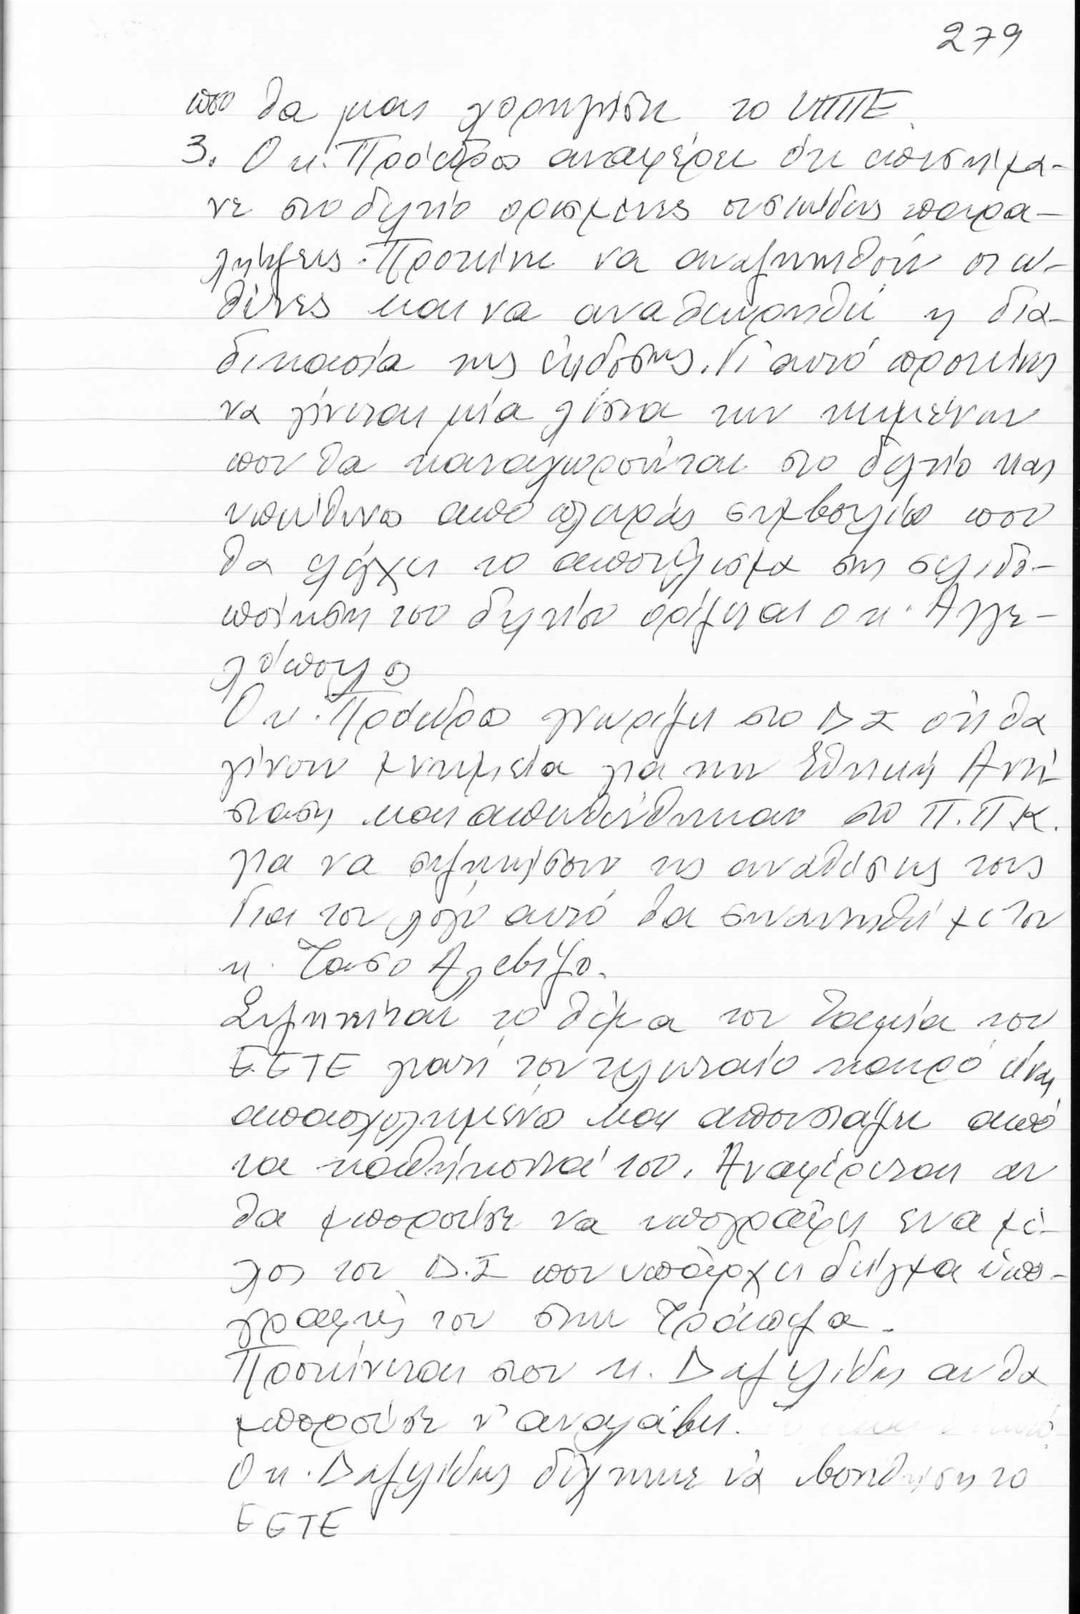 279
που θα μας χορηγήσει το ΥΠΠΕ.
3. Ο κ. Πρόεδρος αναφέρει ότι επεσήμα-
νε στο δελτίο ορισμένες σελίδες παρα-
λήψεις. Προτείνει να αναζητηθούν οι ευ-
θύνες και να αναθεωρηθεί η δια-
δικασία της έκδοσης. Γι αυτό προτείνει
να γίνεται μία λίστα των κειμένων
που θα καταχωρούνται στο δελτίο και
υπεύθυνος από πλευράς συμβουλίου που
θα ελέγχει το αποτέλεσμα της σελιδο-
ποίησης του δελτίου ορίζεται ο κ. Αγγε-
λόπουλος
Ο κ. Πρόεδρος γνωρίζει στο ΔΣ ότι θα
γίνουν μνημεία για την Εθνική Αντί
σταση και απευθύνθηκαν στο Π.ΠΚ.
για να συζητήσουν τις αναθέσεις τους
Για τον λόγο αυτό θα συναντηθεί με τον
κ. Τάσο Αλεβίζο.
Συζητείται το θέμα του Ταμία του
ΕΕΤΕ γιατί τον τελευταίο καιρό είναι
απασχολημένος και απουσιάζει από
τα καθήκοντά του. Αναφέρεται αν
θα μπορούσε να υπογράφει ένα μέ-
λος του Δ.Σ που υπάρχει δείγμα υπο-
γραφής του στην Τράπεζα.
Προτείνεται στον κ. Δαζελίδης αν θα
μπορούσε ν' αναλάβει.
Ο κ. Δαζελίδης δέχτηκε να βοηθήση το
ΕΕΤΕ